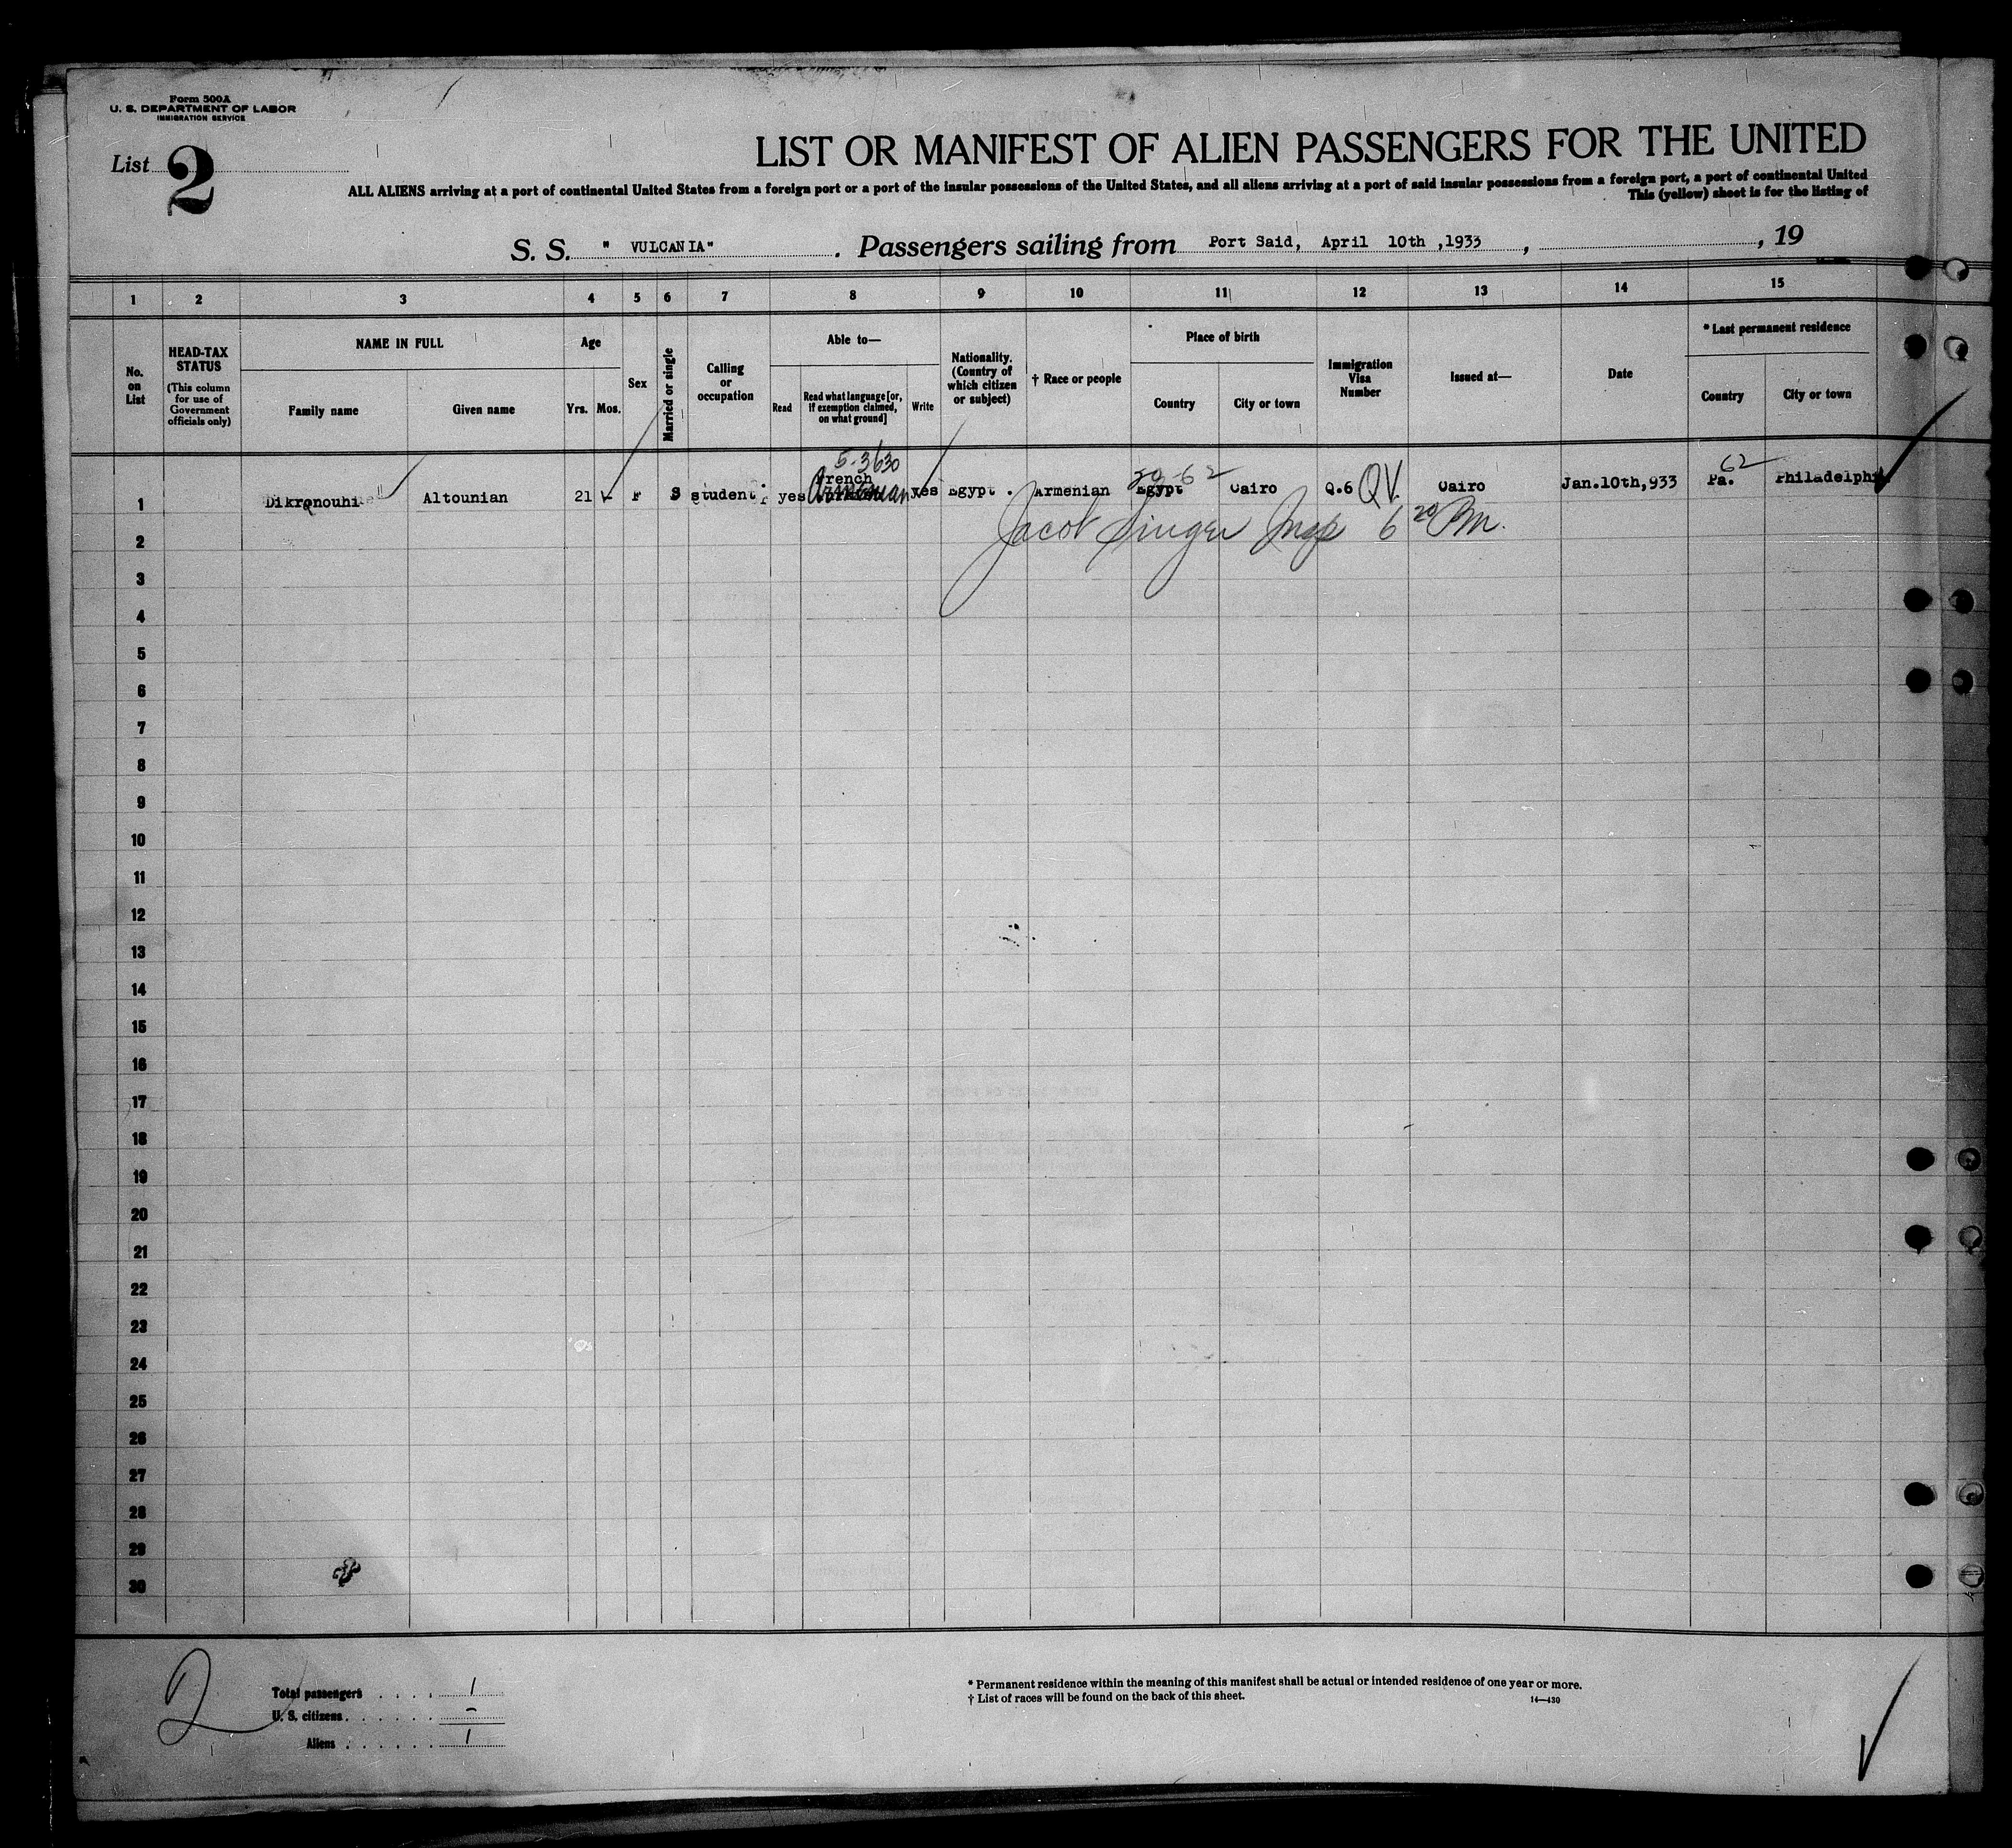 Form 500A
U. S. DEPARTMENT OF LABOR
IMMIGRATION SERVICE
List 2
LIST OR MANIFEST OF ALIEN PASSENGERS FOR THE UNITED
ALL ALIENS arriving at a port of continental United States from a foreign port or a port of the insular possessions of the United States, and all aliens arriving at a port of said insular possessions from a foreign port, a port of continental United
This (yellow) sheet is for the listing of
S. S. " VULCANIA" . Passengers sailing from Port Said, April 10th ,1933 , , 19
1 2 3 4 5 6 7 8 9 10 11 12 13 14 15
No. on List
HEAD-TAX STATUS
(This column for use of Government officials only)
NAME IN FULL
Family name
Given name
Age
Yrs. Mos.
Sex
Married or single
Calling or occupation
Able to—
Read
Read what language [or, if exemption claimed, on what ground]
Write
Nationality. (Country of which citizen or subject)
† Race or people
Place of birth
Country
City or town
Immigration Visa Number
Issued at—
Date
* Last permanent residence
Country
City or town
5-3630
1 Dikronouhi Altounian 21 - F S student yes French Armenian yes Egypt . Armenian Egypt Cairo Q.6 QV Cairo Jan.10th,933 62 Pa. Philadelphi
2 Jacob Singer Insp 6 20 Pm.
3
4
5
6
7
8
9
10
11
12
13
14
15
16
17
18
19
20
21
22
23
24
25
26
27
28
29
30
2
Total passengers . . . . 1
U. S. citizens . . . . . . -
Aliens . . . . . . 1
* Permanent residence within the meaning of this manifest shall be actual or intended residence of one year or more.
† List of races will be found on the back of this sheet. 14—430